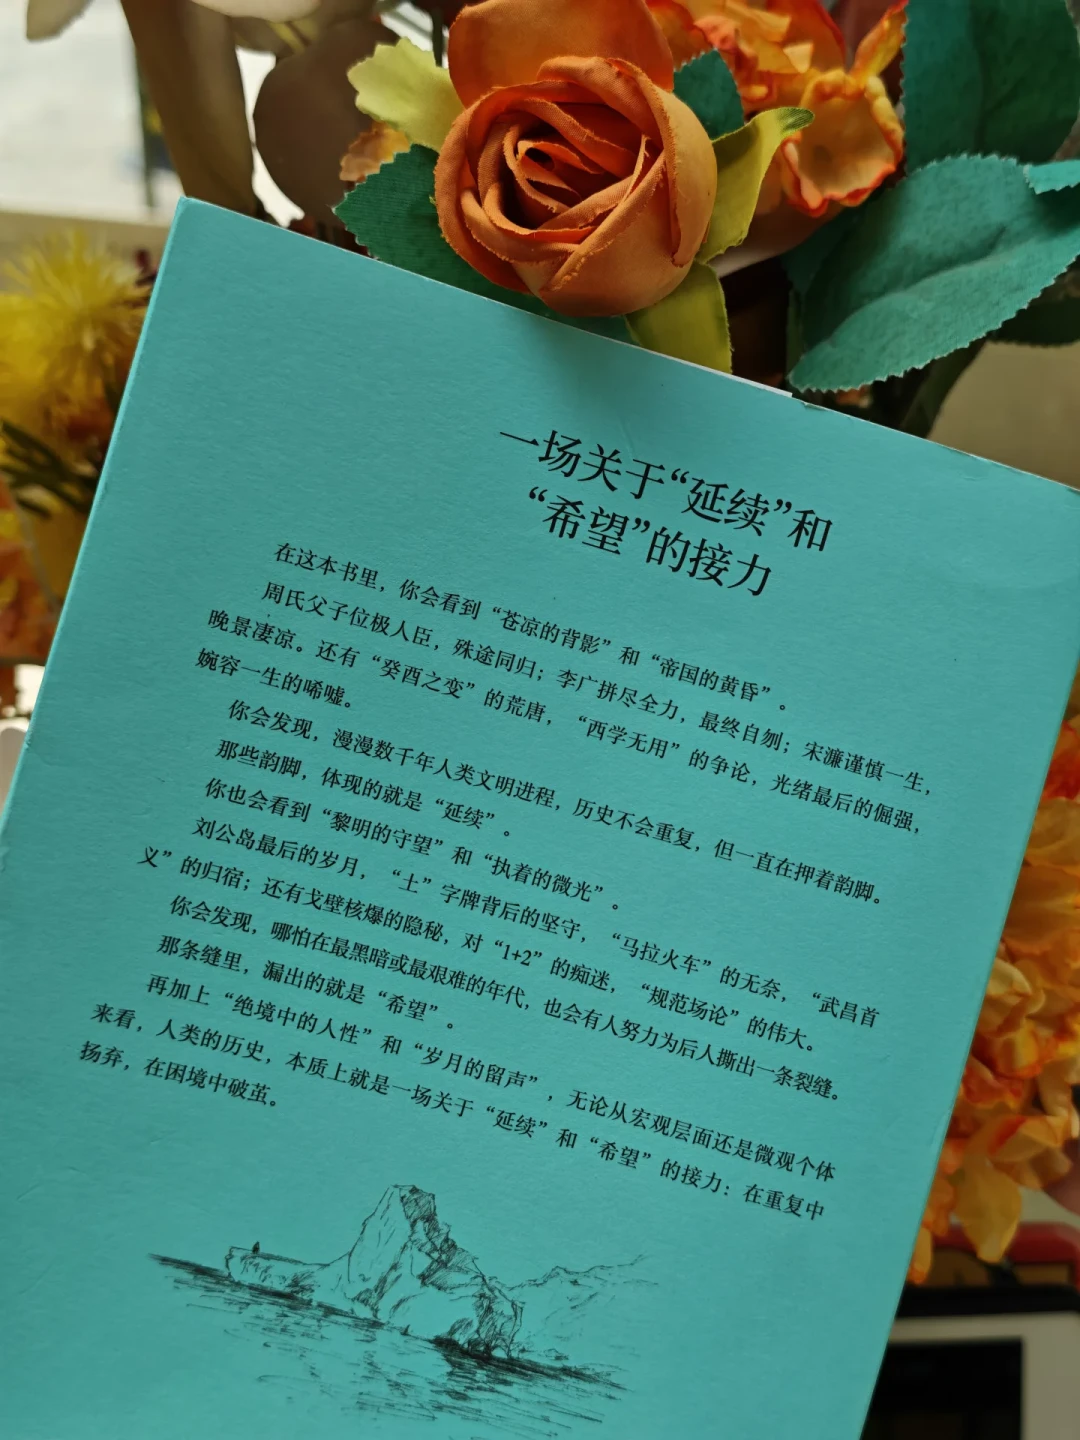 一场关于“延续”和
“希望”的接力
在这本书里，你会看到“苍凉的背影”和“帝国的黄昏”。
周氏父子位极人臣，殊途同归；李广拼尽全力，最终自刎；宋濂谨慎一生，
晚景凄凉。还有“癸酉之变”的荒唐，“西学无用”的争论，光绪最后的倔强，
婉容一生的唏嘘。
你会发现，漫漫数千年人类文明进程，历史不会重复，但一直在押着韵脚。
那些韵脚，体现的就是“延续”。
你也会看到“黎明的守望”和“执着的微光”。
刘公岛最后的岁月，“士”字牌背后的坚守，“马拉火车”的无奈，“武昌首
义”的归宿；还有戈壁核爆的隐秘，对“1+2”的痴迷，“规范场论”的伟大。
你会发现，哪怕在最黑暗或最艰难的年代，也会有人努力为后人撕出一条裂缝。
那条缝里，漏出的就是“希望”。
再加上“绝境中的人性”和“岁月的留声”，无论从宏观层面还是微观个体
来看，人类的历史，本质上就是一场关于“延续”和“希望”的接力：在重复中
扬弃，在困境中破茧。